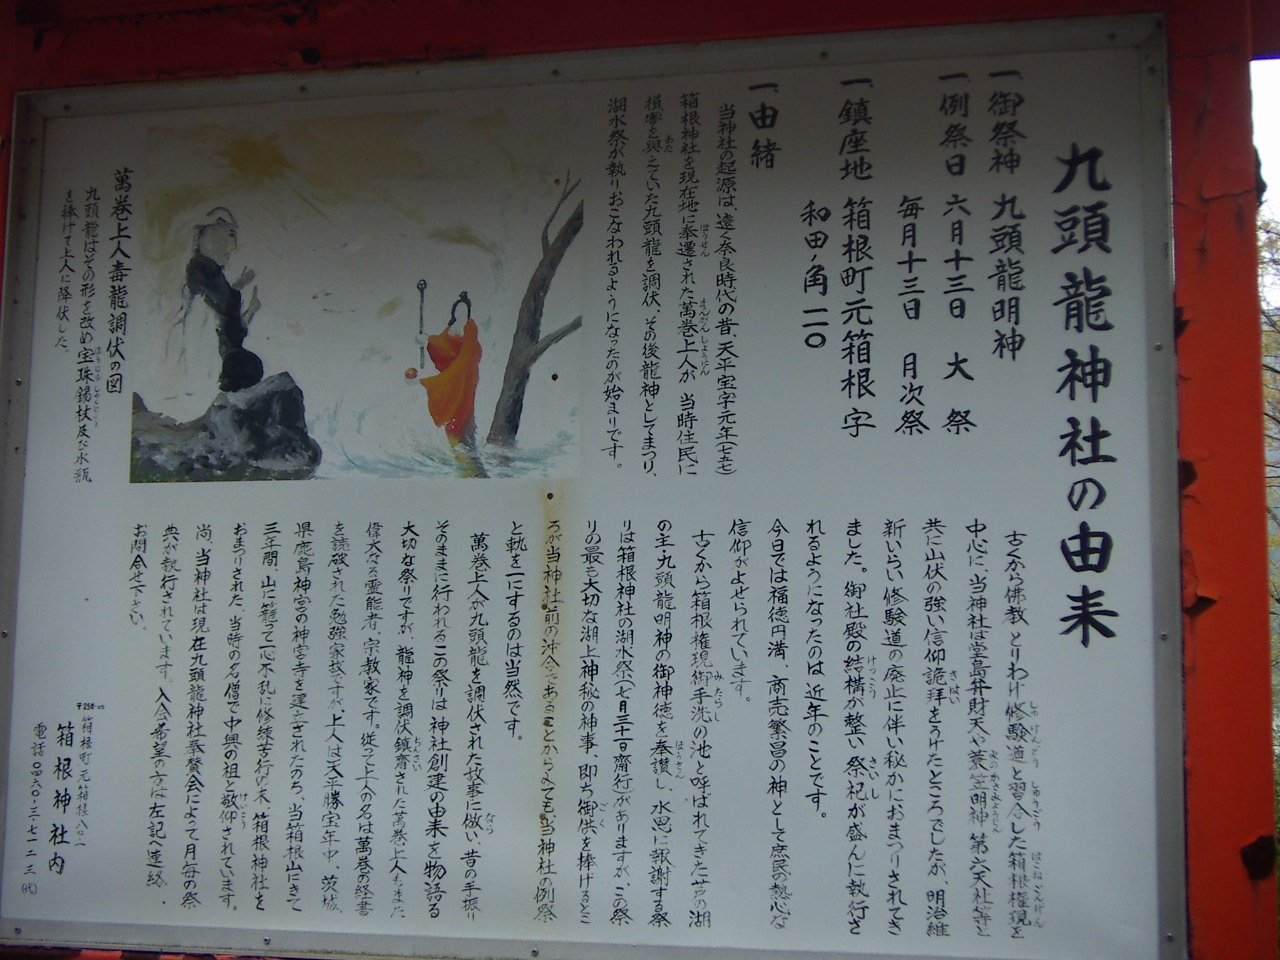 九頭龍神社の由来
一、御祭神 九頭龍明神
一、例祭日 六月十三日 大祭
毎月十三日 月次祭
一、鎮座地 箱根町元箱根字
和田ノ角一二〇
一、由緒
当神社の起源は、遠く奈良時代の昔、天平宝字元年(七五七)
箱根神社を現在地に奉遷された萬巻上人が、当時住民に
損害を與えていた九頭龍を調伏、その後龍神としてまつり、
湖水祭が執りおこなわれるようになったのが始まりです。
萬巻上人毒龍調伏の図
九頭龍はその形を改め宝珠錫杖及び水瓶
を捧げて上人に降伏した。
古くから佛教、とりわけ修験道と習合した箱根権現を
中心に、当神社は堂島弁財天や蓑笠明神、第六天社等と
共に山伏の強い信仰詭拜をうけたところでしたが、明治維
新いらい修験道の廃止に伴い秘かにおまつりされてき
ました。御社殿の結構が整い祭祀が盛んに執行さ
れるようになったのは近年のことです。
今日では福徳円満、商売繁昌の神として庶民の熱心な
信仰がよせられています。
古くから箱根権現御手洗の池と呼ばれてきた芦の湖
の主・九頭龍明神の御神徳を奉讃し、水恩に報謝する祭
りは箱根神社の湖水祭(七月三十一日齋行)がありますが、この祭
りの最も大切な湖上神秘の神事、即ち御供を捧げるとこ
ろが当神社前の沖合であることからみても、当神社の例祭
と軌を一にするのは当然です。
萬巻上人が九頭龍を調伏された故事に倣い、昔の手振り
そのままに行われるこの祭りは神社創建の由来を物語る
大切な祭りですが、龍神を調伏鎮齋された萬巻上人もまた
偉大なる霊能者、宗教家です。従って上人の名は萬巻の経書
を読破された勉強家故ですが、上人は天平勝宝年中、茨城
県鹿島神宮の神宮寺を建立されたのち、当箱根山にきて
三年間、山に籠って一心不乱に修練苦行の末、箱根神社を
おまつりされた、当時の名僧で中興の祖と敬仰されています。
尚、当神社は現在九頭龍神社奉賛会によって月毎の祭
典が執行されています。入会希望の方は左記へ連絡、
お問合せ下さい。
〒250
箱根町元箱根八〇ノ一
箱根神社内
電話〇四六〇-三-七一二三(代)